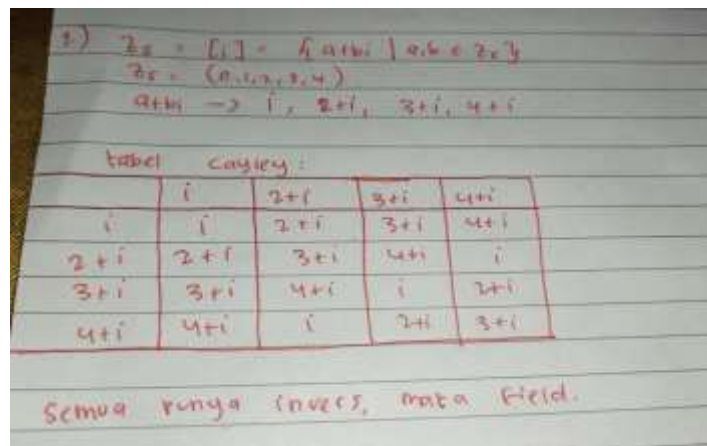 2) Z₅ = [i] = { a+bi | a,b ∈ Z₅ }
Z₅ = (0,1,2,3,4)
a+bi -> i, 2+i, 3+i, 4+i
tabel cayley :
i 2+i 3+i 4+i
i i 2+i 3+i 4+i
2+i 2+i 3+i 4+i i
3+i 3+i 4+i i 2+i
4+i 4+i i 2+i 3+i
Semua punya invers, maka Field.